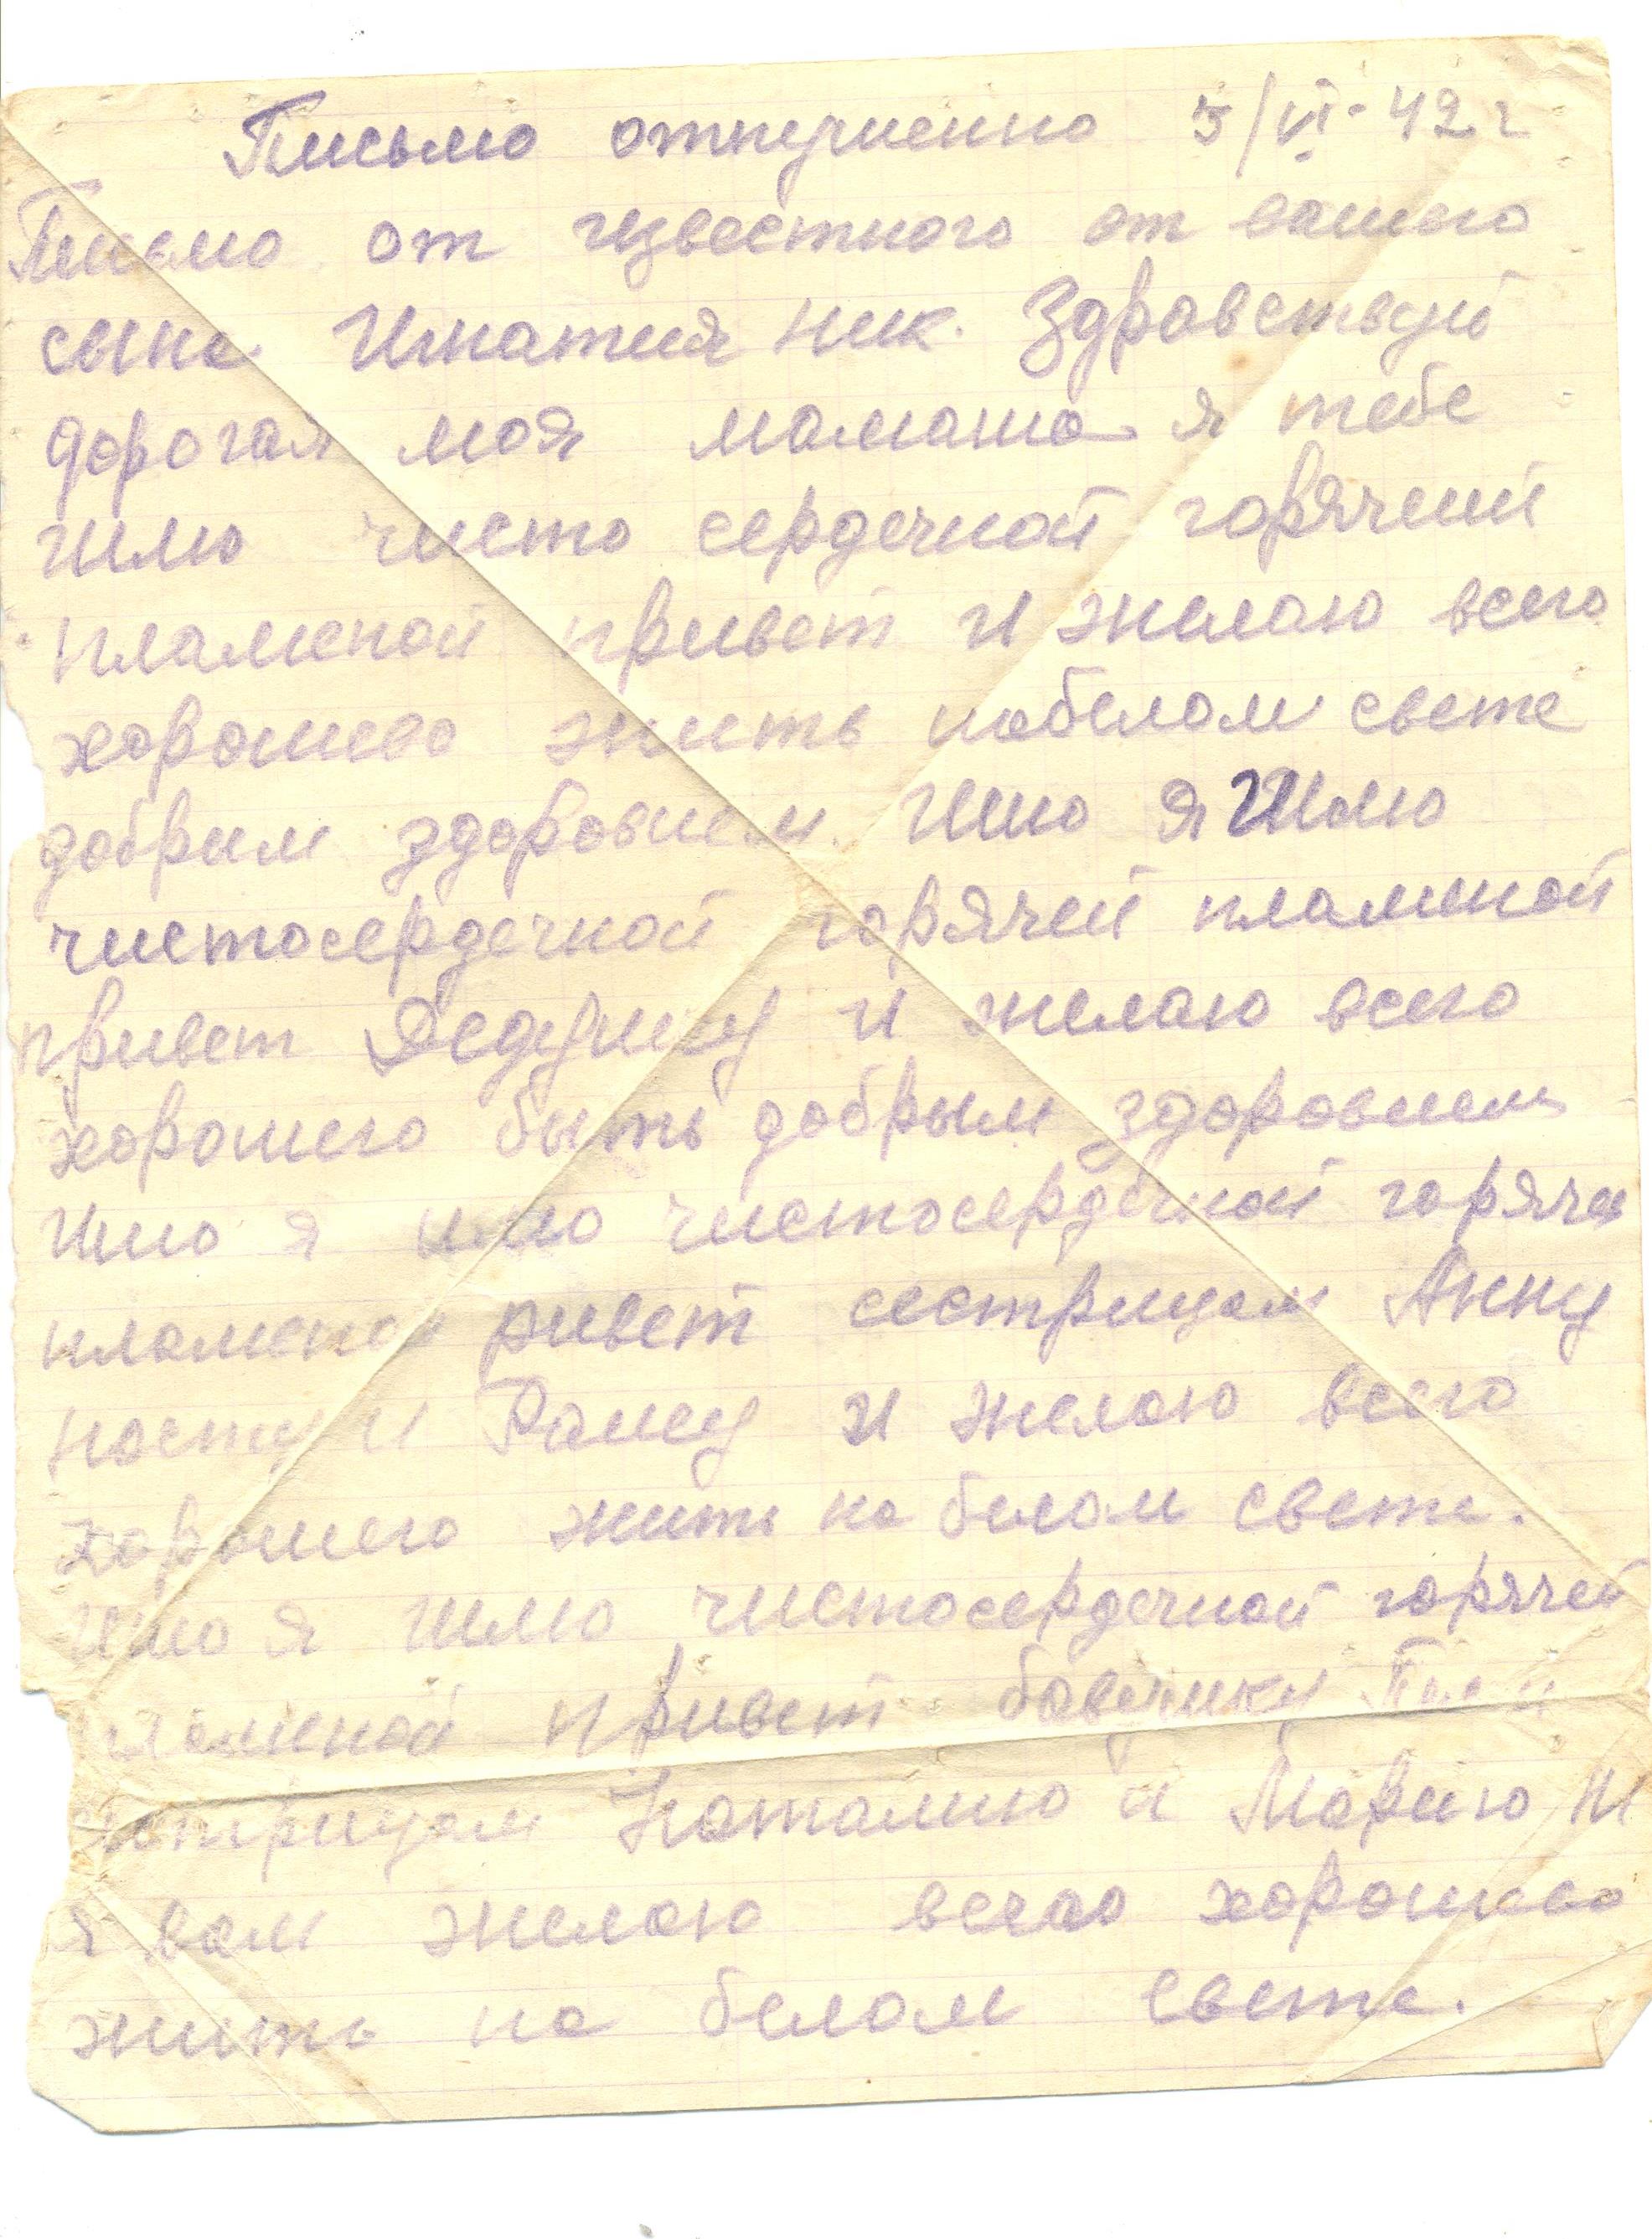 Письмо отпушенно 5/VI-42 г
Письмо от известного от вашего
сына Игнатия Ник. Здравствуй
дорогая моя мамаша я тебе
шлю чисто сердечной горячий
пламеной привет и желаю всего
хорошево жить набелом свете
добрым здоровием. Ишо я Шлю
чистосердечной горячей пламеной
привет Дедушку и желаю всего
хорошего быть добрым здоровием
Ишо я шлю чистосердечной горячей
пламеной ривет сестрицам Анну
Насту и Раису и желаю всего
хорошего жить на белом свете.
Ишо я шлю чистосердечной горячей
пламеной привет бавушку и
естрицам Наталию и Марию и
я вам желаю всего хорошево
жить на белом свете.